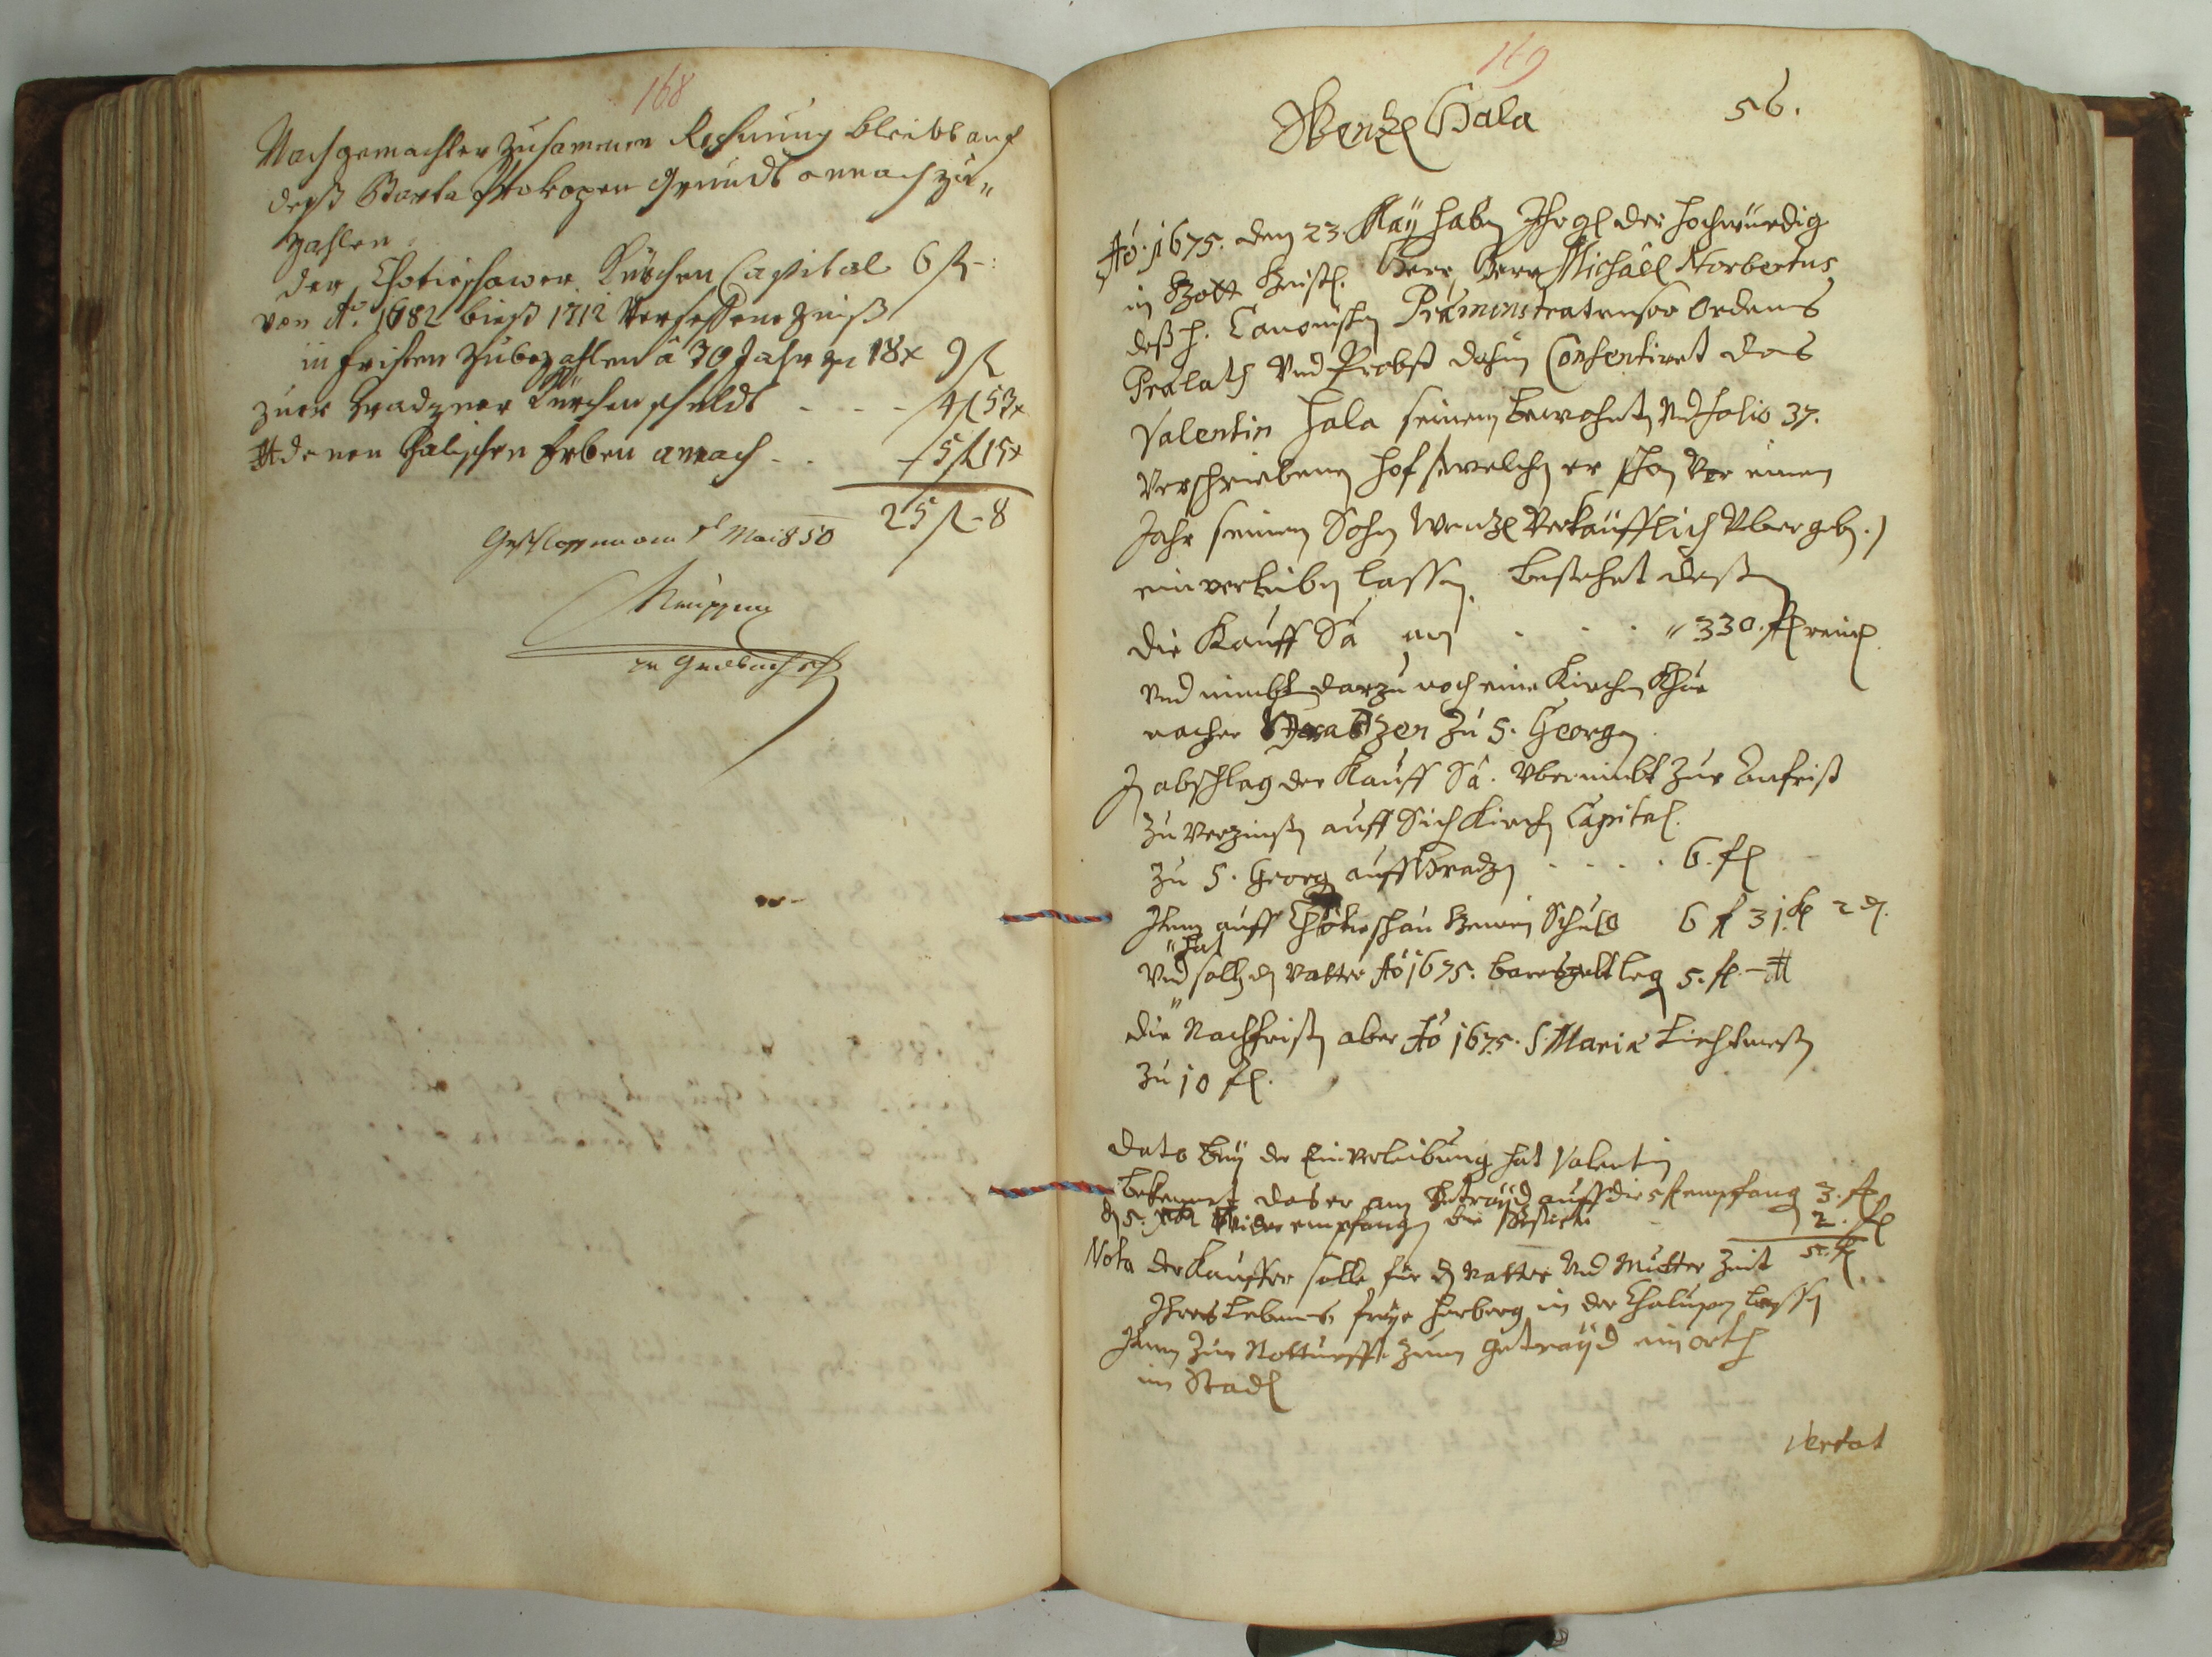 168
Nachgemachter zusammen Rechnung bleibt auf
deß Barta Prokopen Grundt annoch zu„
zahlen
der Chotieschawer Kürchen Capital 6 fl -:
von Aō. 1682 bieß 1712 Versessene Zinß
in fristen zubezahlen â 30 Jahr zu 18x 9 fl
zuer Hradzner Kürchen schuldt - - - 4 fl 53x
denen Halischen Erben annoch - - 5 fl 15x
25 fl - 8
Geschlossen am Mai 850
zu Grundbuchsf
169
Wentzl Hala 56.
Aō. 1675. den 23. Maÿ haben Ihr gl der hochwürdig
in Gott Geistl. Herr, Herr Michaël Norbertus
deß h. Canonischen Præmonstratenser Ordens
Prælath Vnd Probst dahin Consentiret das
Valentin Hala seinen bewohnten Vnd folio 37.
Verschriebenen hof welchen er schon Vor einem
Jahr seinem Sohn Wentzl Verkäufflich Vbergeben.)
einverleiben lassen. bestehet deßen
die Kauff Sā an . . . „330. fl reinl.
Vnd nimbt darzu noch eine Kirchen Khue
nacher Hradzen zu S. Georgen
In abschlag der Kauff Sā. Vbernimbt zur Anfrist
zu Verzinsen auff Sich Kirchen Capital.
zu S. Georg auff Hradzen . . . . 6. fl
Item auff Chotieschau Gemein Schuld 6 fl 31 kr 2 d.
hat
Vnd solle den Vatter Aō 1675. bares gelt legen 5. fl. -
die Nachfristen aber Aō 1675. S. Mariæ Liechtmeß
zu 10 fl.
Dato beÿ der Einverleibung hat Valentin
bekennt das er am Getraÿd auff die 5 fl empfangen 3. fl
d 5. wider empfangen die 2. fl
5. fl
Nota der Kauffer solle für den Vatter Vnd Mutter Zeit
Ihres Lebens freÿe herberg in der Chalupen lassen
Item Zur Notturfft zum getraÿd ein orth
im Stadl
Vertat